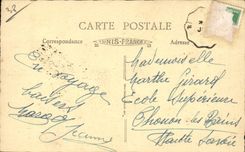 CARTE POSTALE
Correspondance
UNIS-FRANCE
Adresse
En voyage
baisers
Jeanne
Mademoiselle
Marthe Girard
Ecole Supérieure
Thonon-les-Bains
Haute Savoie